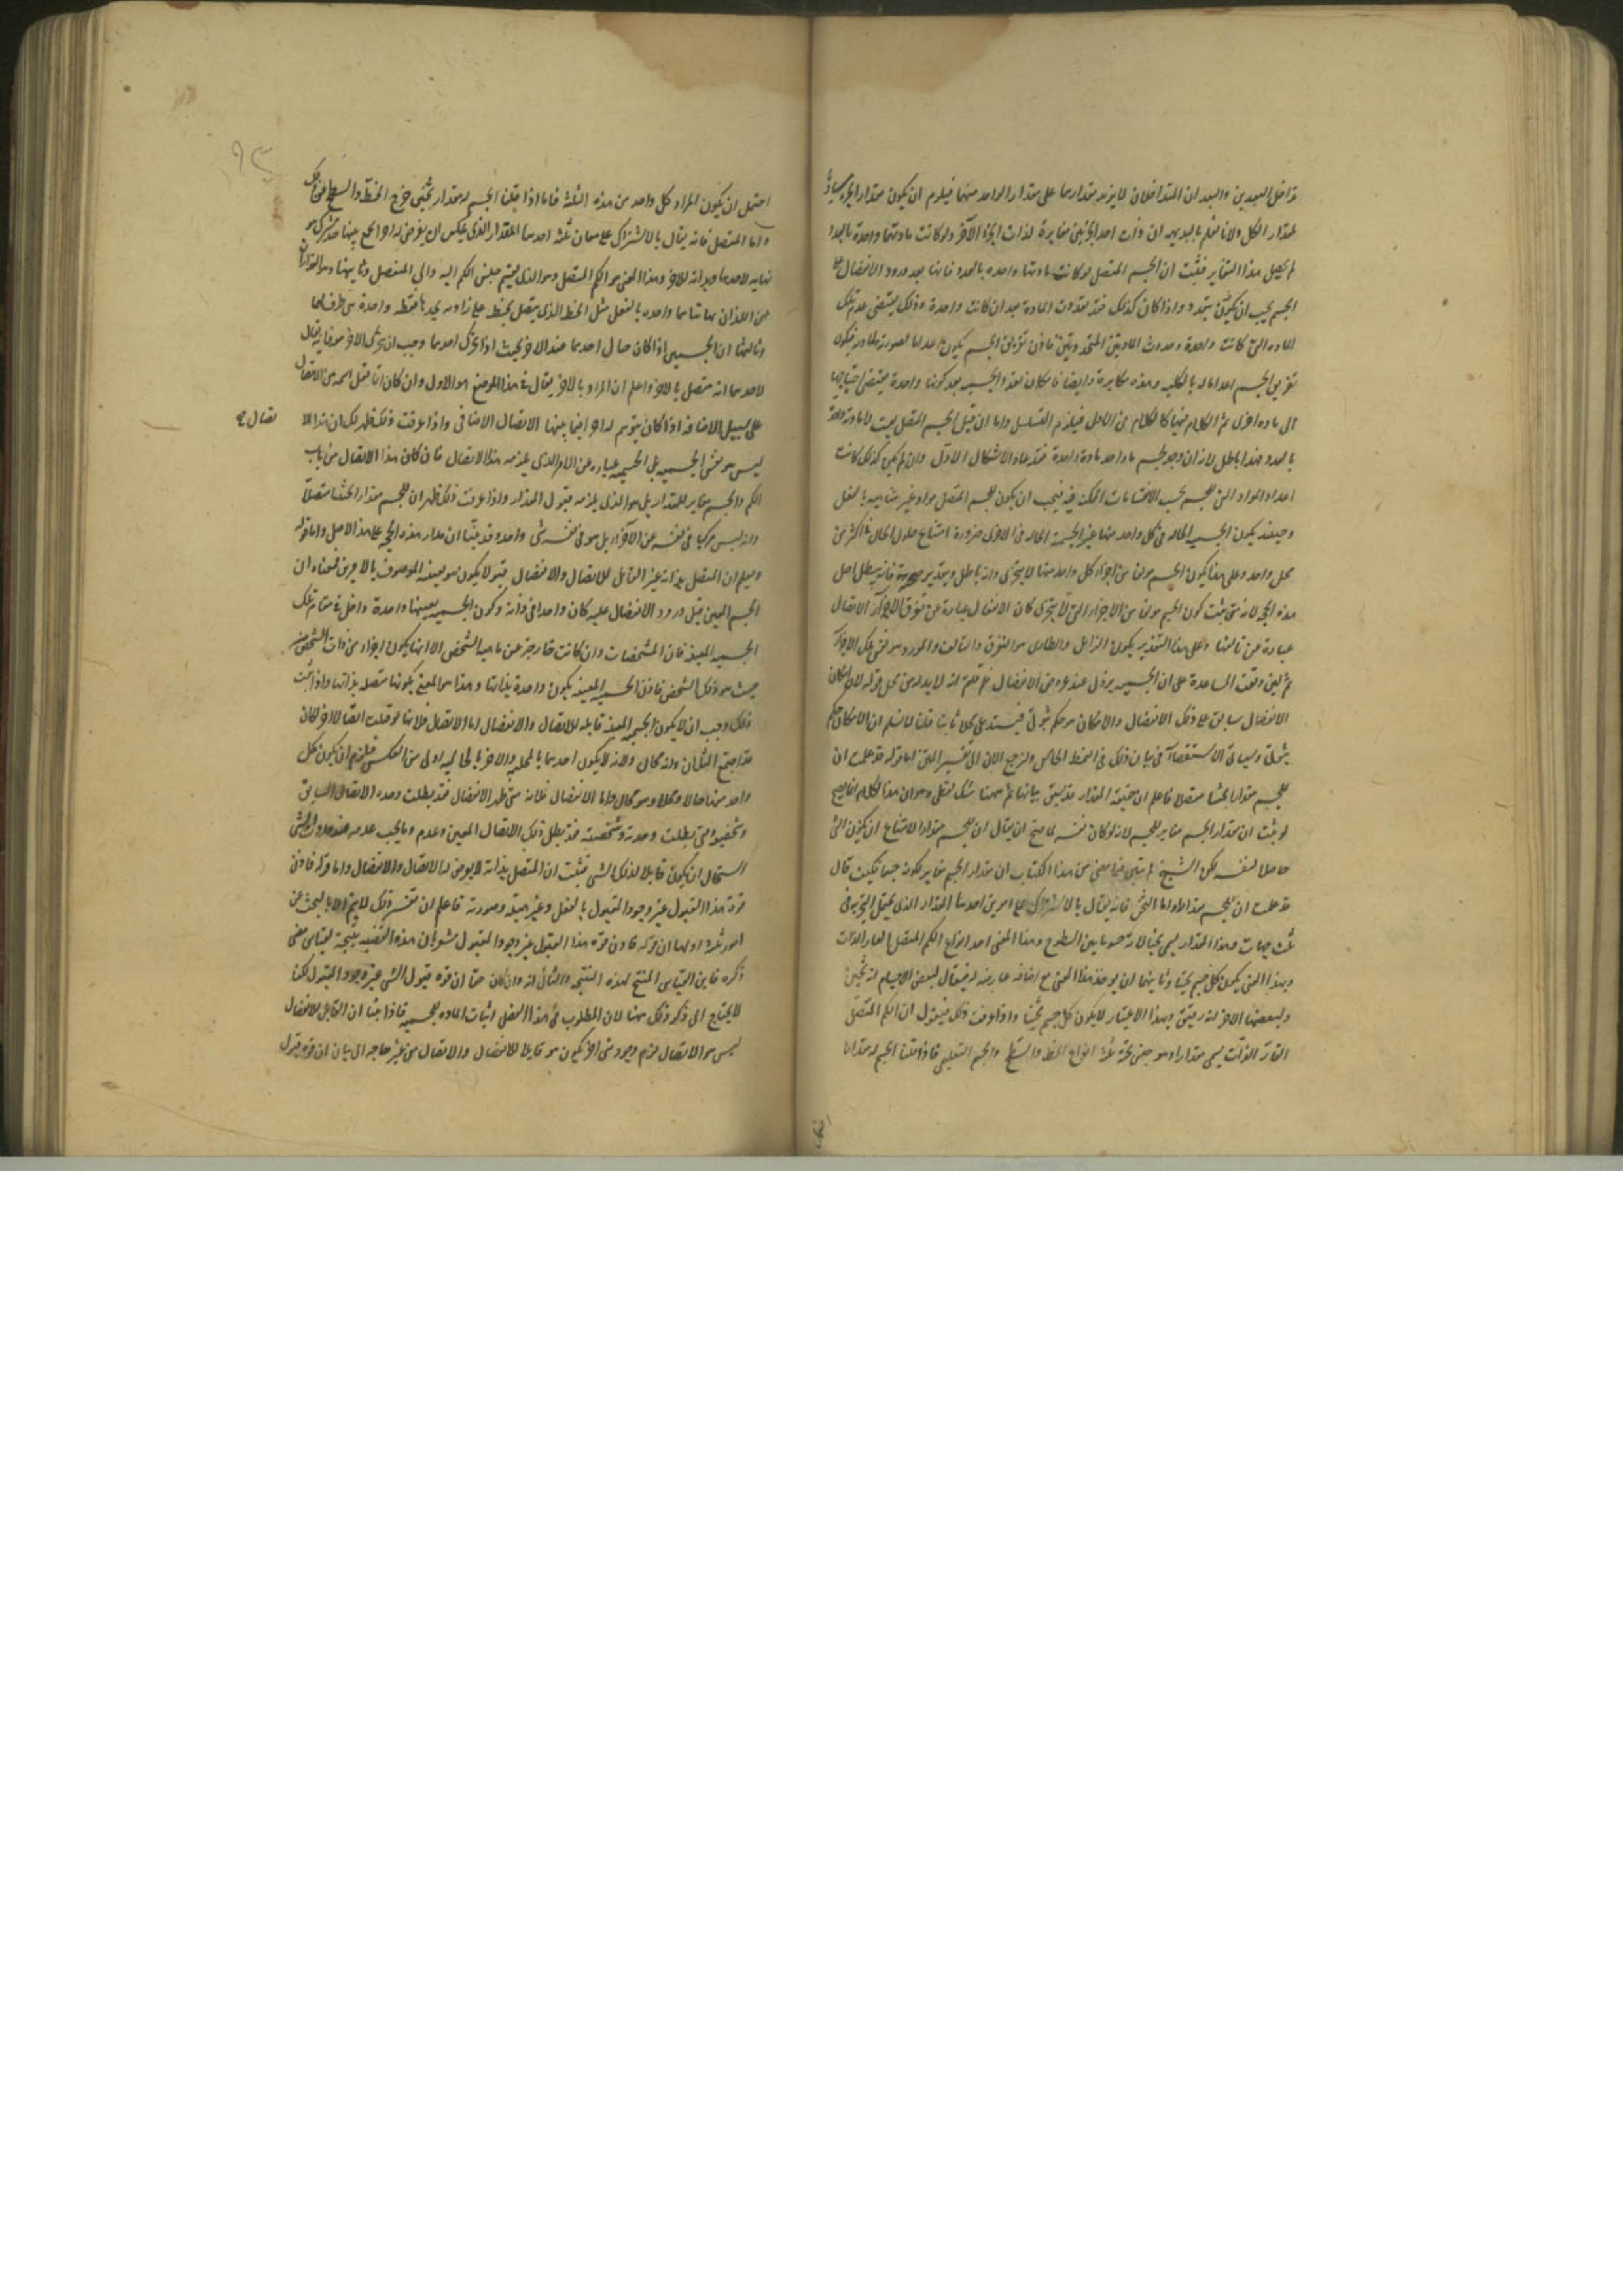 تداخل البعدين والبعدان المتداخلان لا يزيد مقدارهما على مقدار الواحد منهما فيلزم ان يكون مقدار الجزء مساويا
لمقدار الكل ولانا نعلم بالبديهة ان ذات احد الجزئين مغايرة لذات الجزء الآخر ولو كانت مادتهما واحدة بالعدد
لم يحصل هذا التغاير فثبت ان الجسم المتصل لو كانت مادتها واحده بالعدد فانها بعد ورود الانفصال على
الجسم يجب ان يتعدد واذا كان كذلك فقد تعددت المادة بعد ان كانت واحدة وذلك يقتضى عدم تلك
الماده التى كانت واحدة وحدوث المادتين فاذن تفريق الجسم يكون اعداما لصورته ولمادته فيكون
تفريق الجسم اعداما له بالكليه وهذه مكابرة وايضا فامكان تعدد الجسميه بعد كونها واحدة يقتضى احتياجها
الى ماده اخرى ثم الكلام فيها كالكلام فى الاول فيلزم التسلسل واما ان قيل الجسم المتصل ليست له مادة واحدة
بالعدد فهذا باطل لان وجود جسم ماواحد مادة واحدة فقد عاد الاشكال الاول وان لم يكن كذلك كانت
اعداد المواد التى للجسم بحسب الانقسامات الممكنه فيه فيجب ان يكون للجسم المتصل مواد غير متناهيه بالفعل
وحينئذ يكون الجسميه الحاله فى كل واحد منها غير الجسميه الحاله فى الاخرى ضرورة امتناع حلول الحال فى اكثر من
محل واحد وعلى هذا يكون الجسم مولفا من اجزاء كل واحد منها لا يتجزى وانه باطل وبتقدير صحته فانه يبطل اصل
هذه الحجه لانه متى ثبت كون الجسم مولفا من الاجزاء التى لا يتجزى كان الانفصال عبارة عن تفرق الاجزاء والاتصال
عبارة عن تالفها وعلى هذا التقدير يكون الزايل والطارى هو التفرق والتالف والمورد هو نفس تلك الاجزاء
ثم لئن وقعت المساعدة على ان الجسميه يزول عند عروض الانفصال فلم قلتم انه لا بد له من محل قوله لان امكان
الانفصال سابق على ذلك الانفصال والامكان هو حكم ثبوتى فيستدعى محلا ثابتا قلنا لا نسلم ان الامكان حكم
ثبوتى وسياتى الاستقصاء فى بيان ذلك فى النمط الخامس ولنرجع الان الى تفسير المتن اما قوله قد علمت ان
للجسم مقدارا ثخينا متصلا فاعلم ان حقيقة المقدار قد سبق بيانها ثم ههنا شك لفظى وهو ان هذا الكلام انما يصح
لو ثبت ان مقدار الجسم مغاير للجسم لانه لو كان نفسه لما صح ان يقال ان للجسم مقدارا لامتناع ان يكون الشئ
حاصلا لنفسه لكن الشيخ لم يبين فيما مضى من هذا الكتاب ان مقدار الجسم مغاير لكونه جسما فكيف قال
قد علمت ان للجسم مقدارا واما الثخن فانه يقال بالاشتراك على امرين احدهما المقدار الذى يحتمل التجزيه فى
ثلث جهات وهذا المقدار يسمى ثخينا لانه حشو ما بين السطوح وهذا المعنى احد انواع الكم المتصل القار الذات
وبهذا المعنى يكون كل جسم ثخينا وثانيهما ان يوخذ هذا المعنى مع اضافه عارضه له فيقال لبعض الاجسام انه ثخين
ولبعضها الاخر انه رقيق وبهذا الاعتبار لا يكون كل جسم ثخينا واذا عرفت ذلك فنقول ان الكم المتصل
القار الذات يسمى مقدارا وهو جنس تحته ثلثة انواع الخط والسطح والجسم التعليمى فاذا قلنا الجسم له مقدار
احتمل ان يكون المراد كل واحد من هذه الثلثة فاما اذا قلنا الجسم له مقدار ثخين خرج الخط والسطح عن ذلك
واما المتصل فانه يقال بالاشتراك على معان ثلثة احدها المقدار الذى يمكن ان يفرض له اجزاء يجمع بينها حد مشترك هو
نهايه لاحدهما وبدايه للاخر وهذا المعنى هو الكم المتصل وهو الذى ينقسم جنس الكم اليه والى المنفصل وثانيهما
اللذان نهايتاهما واحده بالفعل مثل الخط الذى يتصل بخط على زاويه يحدها نقطه واحدة هى طرف لهما
وثالثها ان الجسمين اذا كان حال احدهما عند الاخر بحيث اذا تحرك احدهما وجب ان يتحرك الاخر معه فانه يقال
لاحدهما انه متصل بالاخر واعلم ان المراد بالاخر يقال فى هذا الموضع هو الاول وان كان انما نقل اسمه من الاتصال
على سبيل الاضافه اذا كان يتوهم له اجزاء فيما بينها الاتصال الاضافى واذا عرفت ذلك ظهر لك ان هذا الا
تصال
ليس هو نفس الجسميه بل الجسميه عباره عن الامر الذى يلزمه هذا الاتصال فان كان هذا الاتصال من باب
الكم والجسم مغاير للمقدار بل هو الذى يلزمه قبول المقدار واذا عرفت ذلك ظهر ان للجسم مقدارا ثخينا متصلا
وانه ليس مركبا فى نفسه عن الاجزاء بل هو فى نفسه شى واحد وقد بينا ان مدار هذه الحجه على هذا الاصل واما قوله
وليعلم ان المتصل بذاته غير القابل للاتصال والانفصال قبولا يكون هو بعينه الموصوف بالامرين فمعناه ان
الجسم المعين قبل ورود الانفصال عليه كان واحدا فى ذاته وكون الجسميه بعينها واحدة داخل فى تلك
الجسميه المعينه فان المشخصات وان كانت خارجة عن ماهية الشخص الا انها يكون اجزاء من ذات الشخص من
حيث هو ذلك الشخص فاذن الجسميه المعينه يكون واحدة بذاتها وهذا هو المعنى بكونها متصله بذاتها واذا ثبت
ذلك وجب ان لا يكون الجسميه المعينه قابله للاتصال والانفصال اما الاتصال فلانها لو قبلت اتصالا اخر لكان
قد اجتمع المثلان وانه محال ولانه لا يكون احدهما بالمحليه والاخر بالحاليه اولى من العكس فيلزم ان يكون كل
واحد منهما حالا ومحلا وهو محال واما الانفصال فلانه متى ظهر الانفصال فقد بطلت وحده الاتصال السابق
وتشخصه ومتى بطلت وحدته وتشخصه فقد بطل ذلك الاتصال المعين وعدم وما يجب عدمه عند حدوث الشى
استحال ان يكون قابلا لذلك الشى فثبت ان المتصل بذاته لا يعرض له الاتصال والانفصال واما قوله فاذن
قوة هذا القبول غير وجود المقبول بالفعل وغير هيئته وصورته فاعلم ان تفسير ذلك لا يتم الا بالبحث عن
امور ثلثة اولها ان قوله فاذن قوة هذا القبول غير وجود المقبول مشعر بان هذه القضيه نتيجة لقياس مضى
ذكره فاين القياس المنتج لهذه النتيجه والثانى انه وان كان حقا ان قوة قبول الشى غير وجود المقبول لكن
لا يحتاج الى ذكر ذلك ههنا لان المطلوب فى هذا الفصل اثبات الماده للجسميه فاذا بينا ان القابل للانفصال
ليس هو الاتصال لزم وجود شى اخر يكون هو قابلا للانفصال والاتصال من غير حاجه الى بيان ان قوة قبول